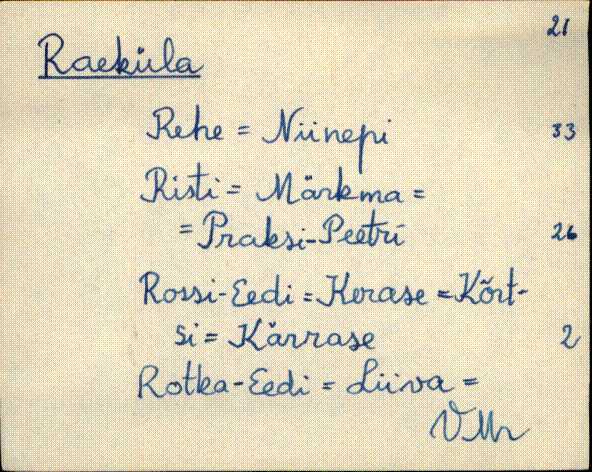 21
Raeküla
Rehe = Niinepi 33
Risti = Märkma =
= Praksi-Peetri 26
Rossi-Eedi = Kerase = Kõrt-
si = Kärrase 2
Rotka-Eedi = Liiva =